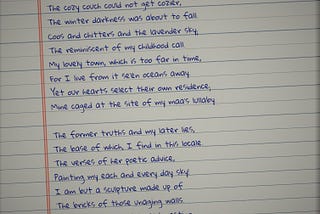 The cozy couch could not get cozier,
The winter darkness was about to fall
Coos and chitters and the lavender sky,
The reminiscent of my childhood call
My lovely town, which is too far in time,
For I live from it seen oceans away
Yet our hearts select their own residence,
Mine caged at the site of my maa's lullaby
The former truths and my later lies,
The base of which I find in this locale.
The verses of her poetic advice,
Painting my each and every day sky
I am but a sculpture made up of
The bricks of those unaging walls